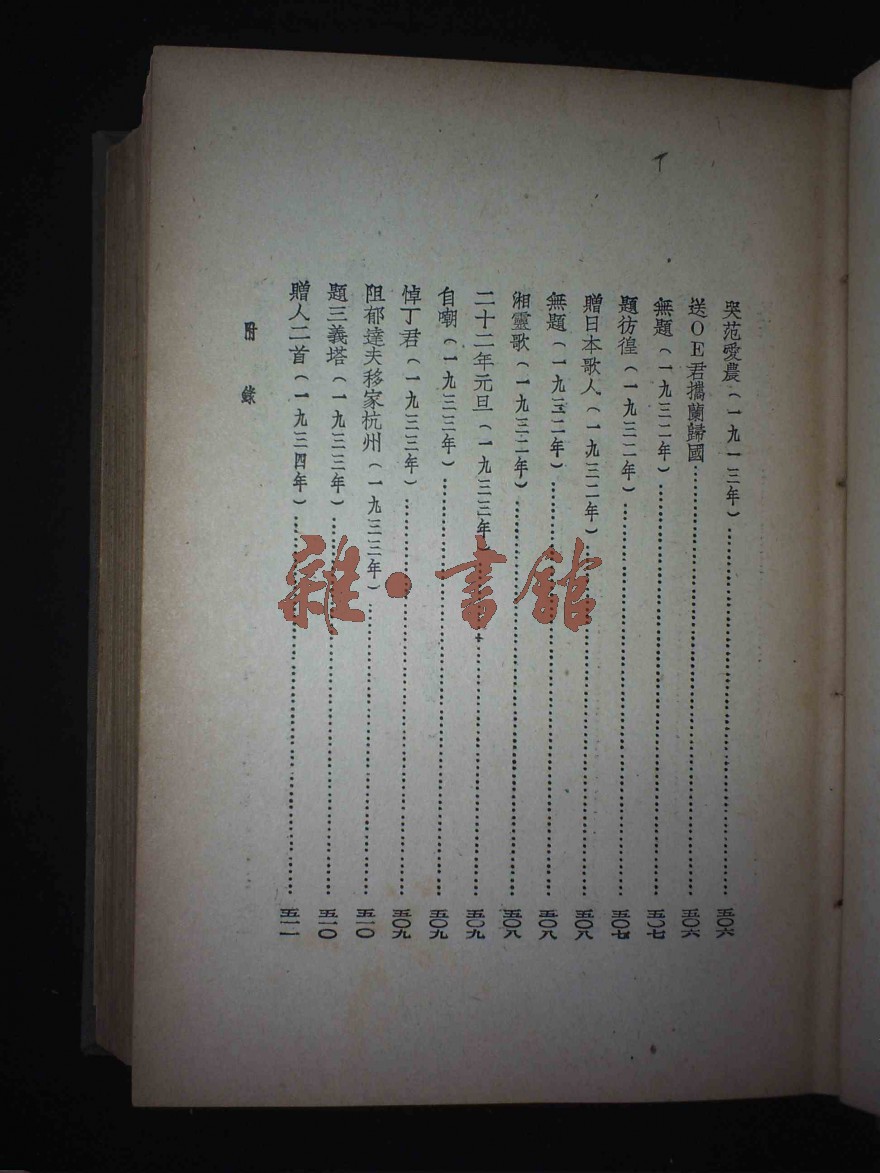 哭范愛農(一九一三年)……五〇六
送OE君攜蘭歸國……五〇六
無題(一九三二年)……五〇七
題彷徨(一九三二年)……五〇七
贈日本歌人(一九三二年)……五〇八
無題(一九三二年)……五〇八
湘靈歌(一九三二年)……五〇八
二十二年元旦(一九三三年)……五〇九
自嘲(一九三三年)……五〇九
悼丁君(一九三三年)……五〇九
阻郁達夫移家杭州(一九三三年)……五一〇
題三義塔(一九三三年)……五一〇
贈人二首(一九三四年)……五一一
附錄
雜·書館